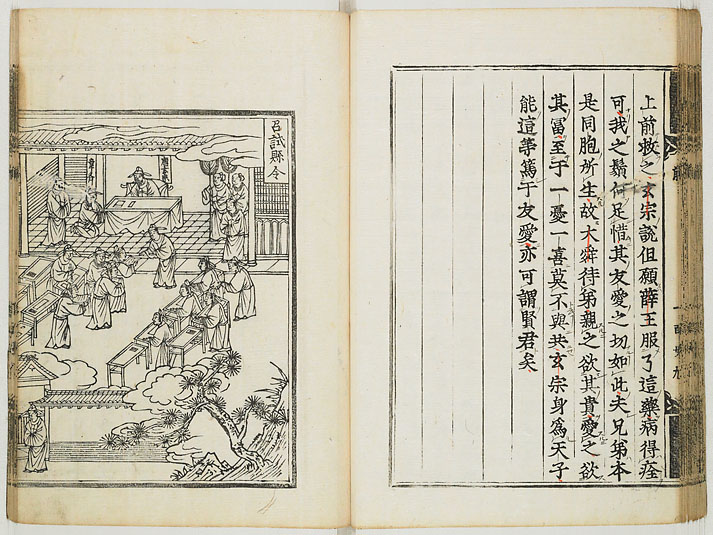 上前救之玄宗說但願薛王服了這藥病得痊
可我之鬚何足惜其友愛之切如此夫兄弟本
是同胞所生故大舜待弟親之欲其貴愛之欲
其富至于一憂一喜莫不與共玄宗身為天子
能這等篤于友愛亦可謂賢君矣
召試縣令